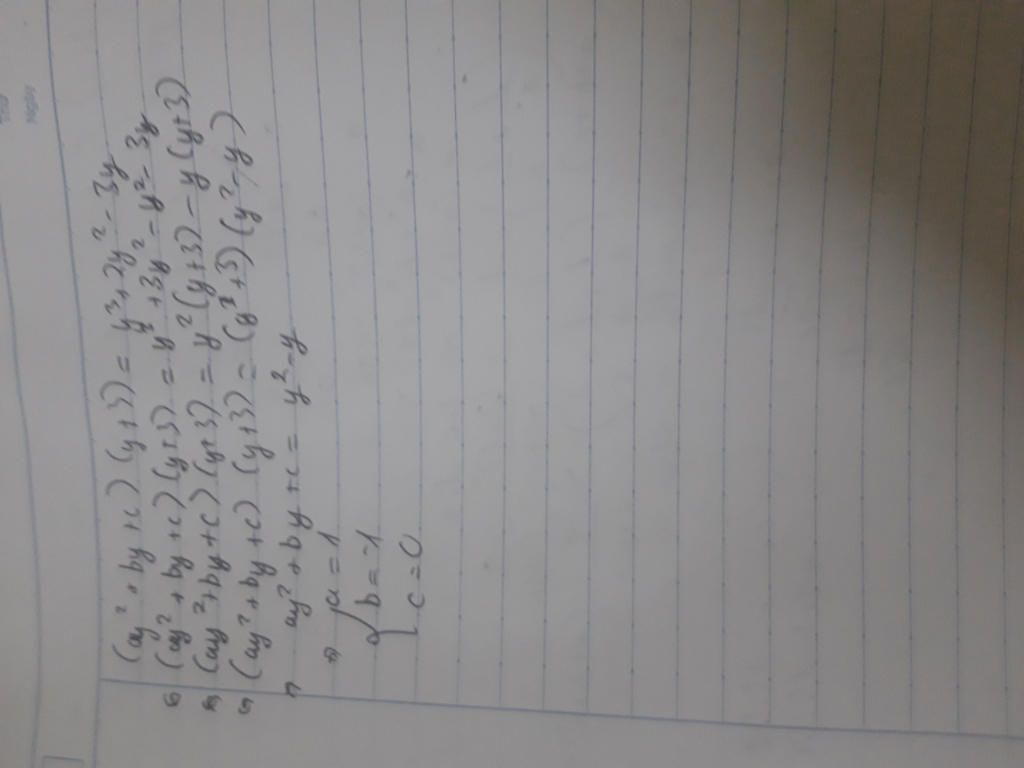 (ay² + by + c) (y+3) = y³ + 2y² - 3y
⇔ (ay² + by + c) (y+3) = y³ + 3y² - y² - 3y
⇔ (ay² + by + c) (y+3) = y² (y+3) - y (y+3)
⇔ (ay² + by + c) (y+3) = (y+3) (y² - y)
⇒ ay² + by + c = y² - y
⇔ { a = 1
b = -1
c = 0